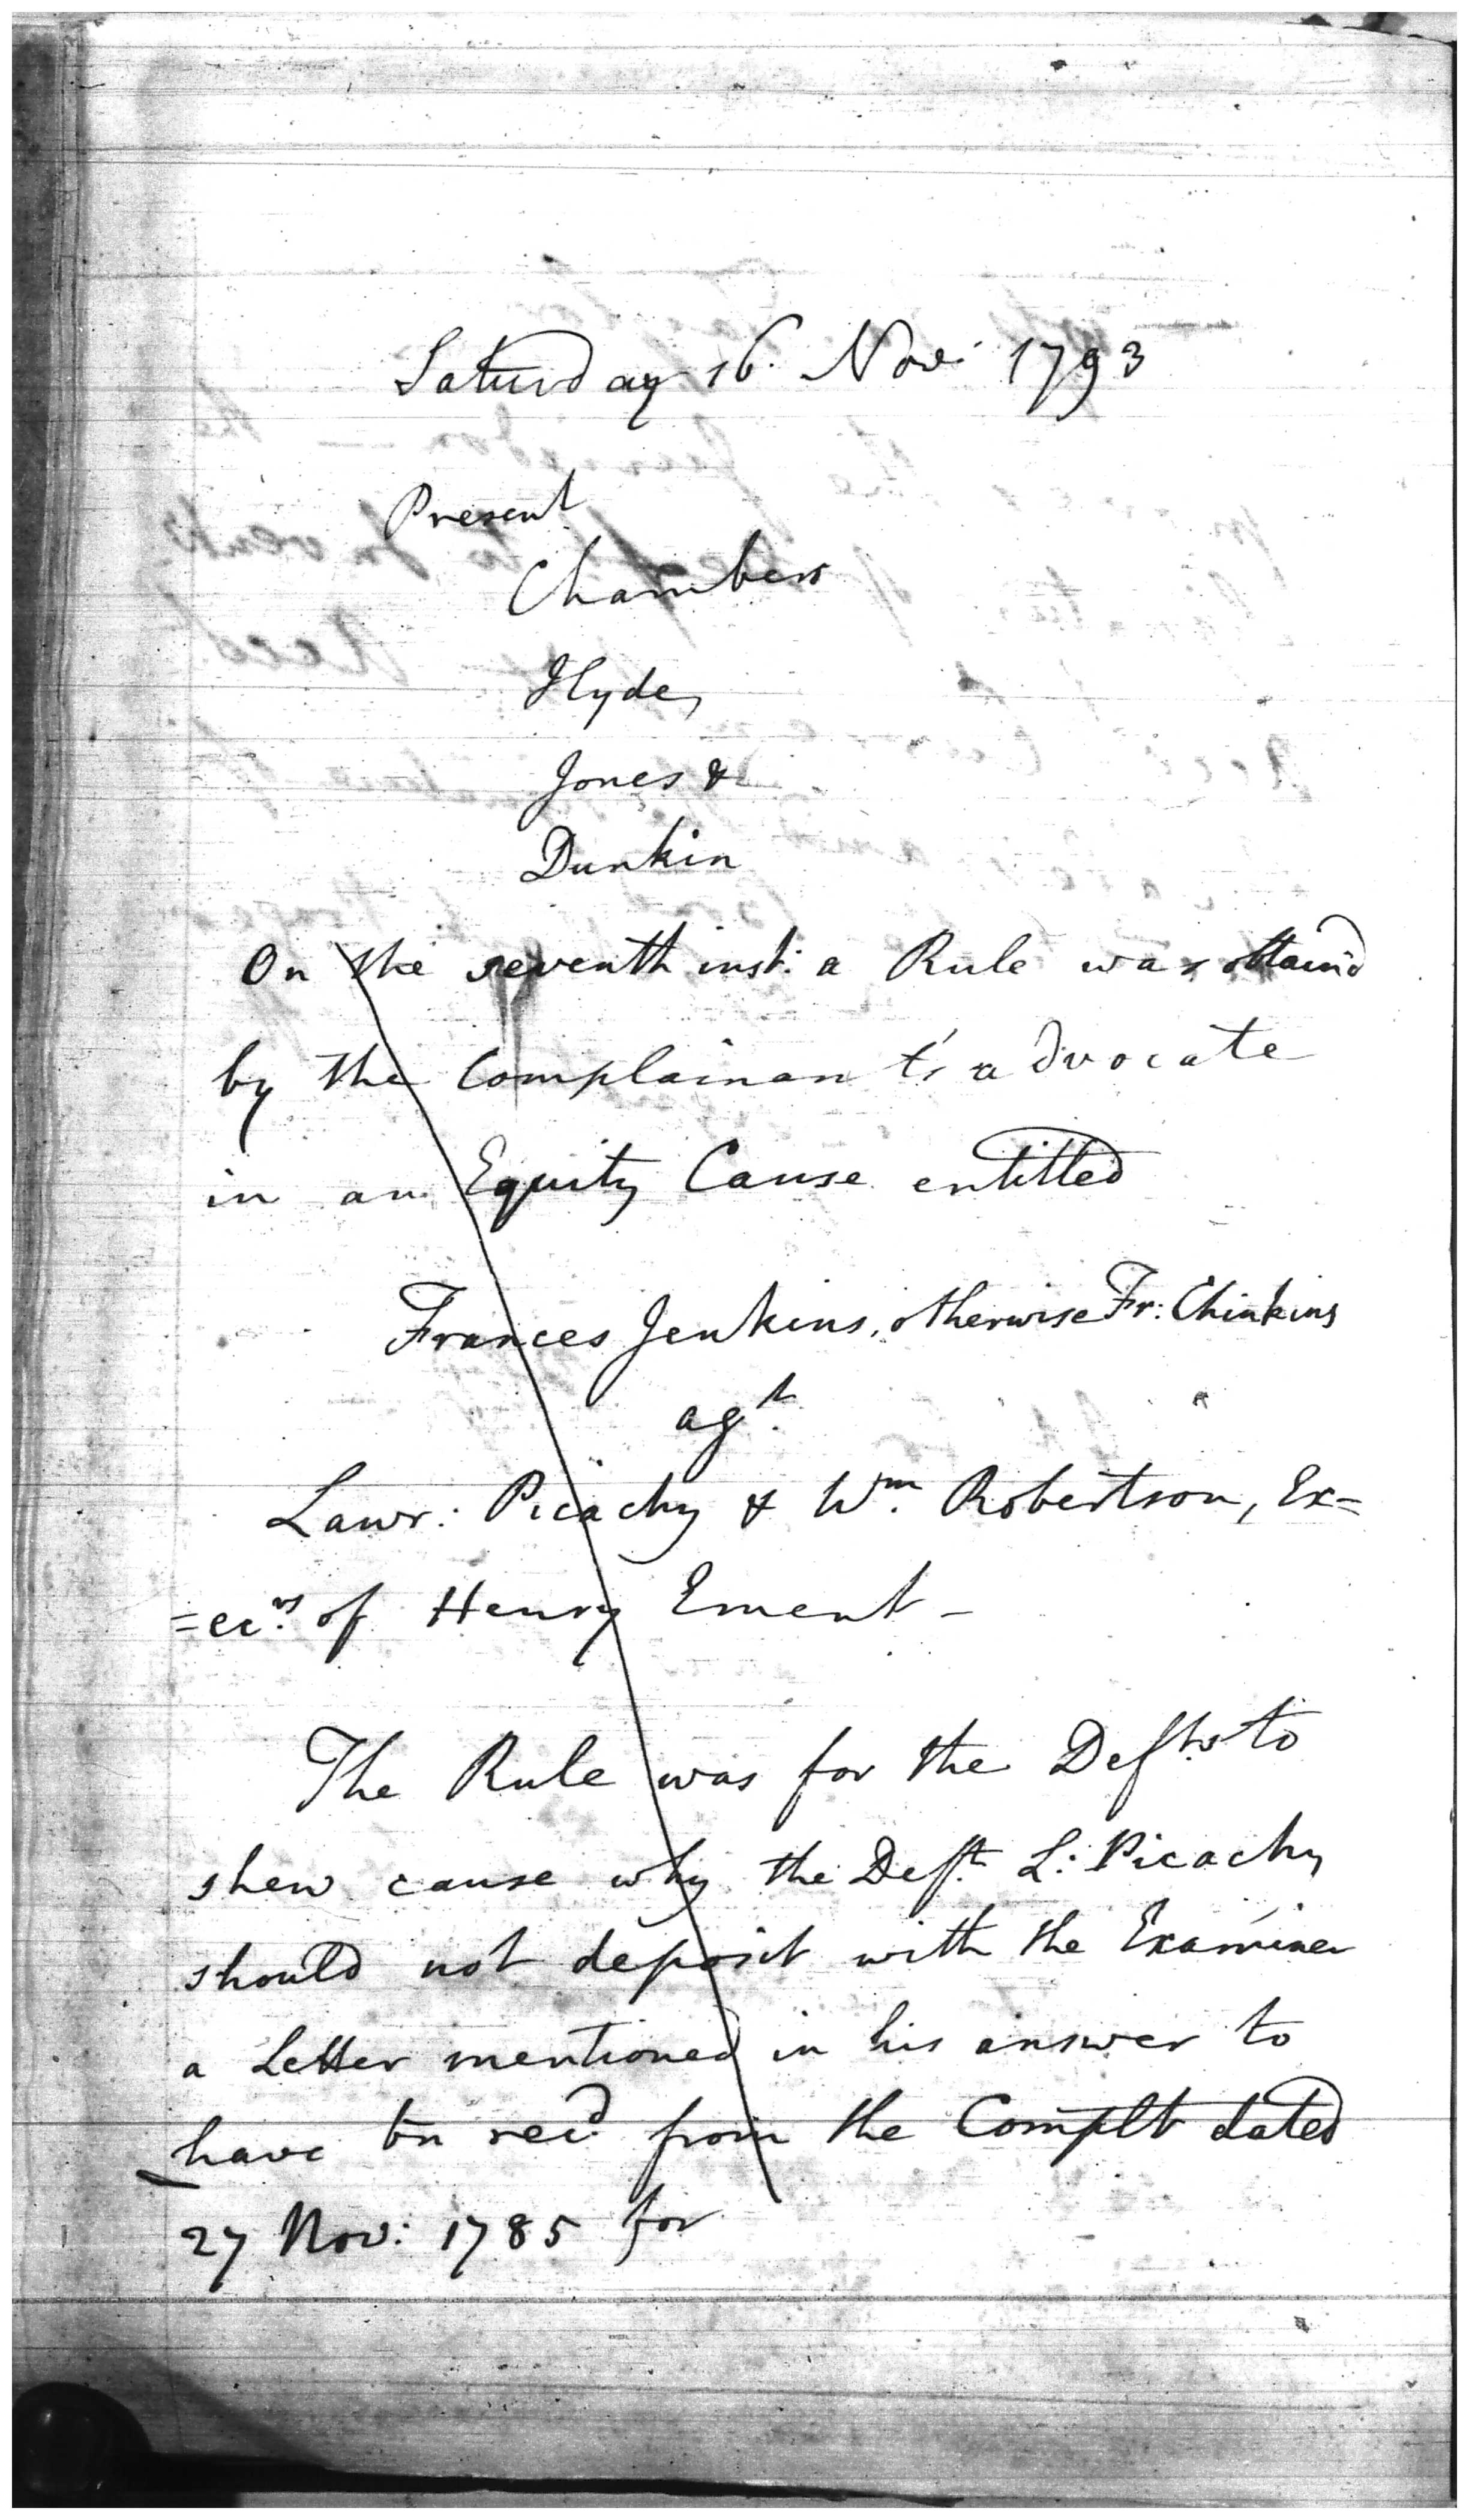 Saturday 16. Nov: 1793
Present
Chambers
Hyde,
Jones &
Dunkin
On the seventh inst: a Rule was obtain'd
by the Complainant's advocate
in an Equity Cause entitled
Frances Jenkins, otherwise Fr: Chinkins
agt.
Lawr: Picachy & Wm. Robertson, Ex=
=ecrs. of Henry Ement -
The Rule was for the Defts. to
shew cause why the Deft. L: Picachy
should not deposit with the Examiner
a Letter mentioned in his answer to
have bn recd. from the Complt dated
27 Nov: 1785 for